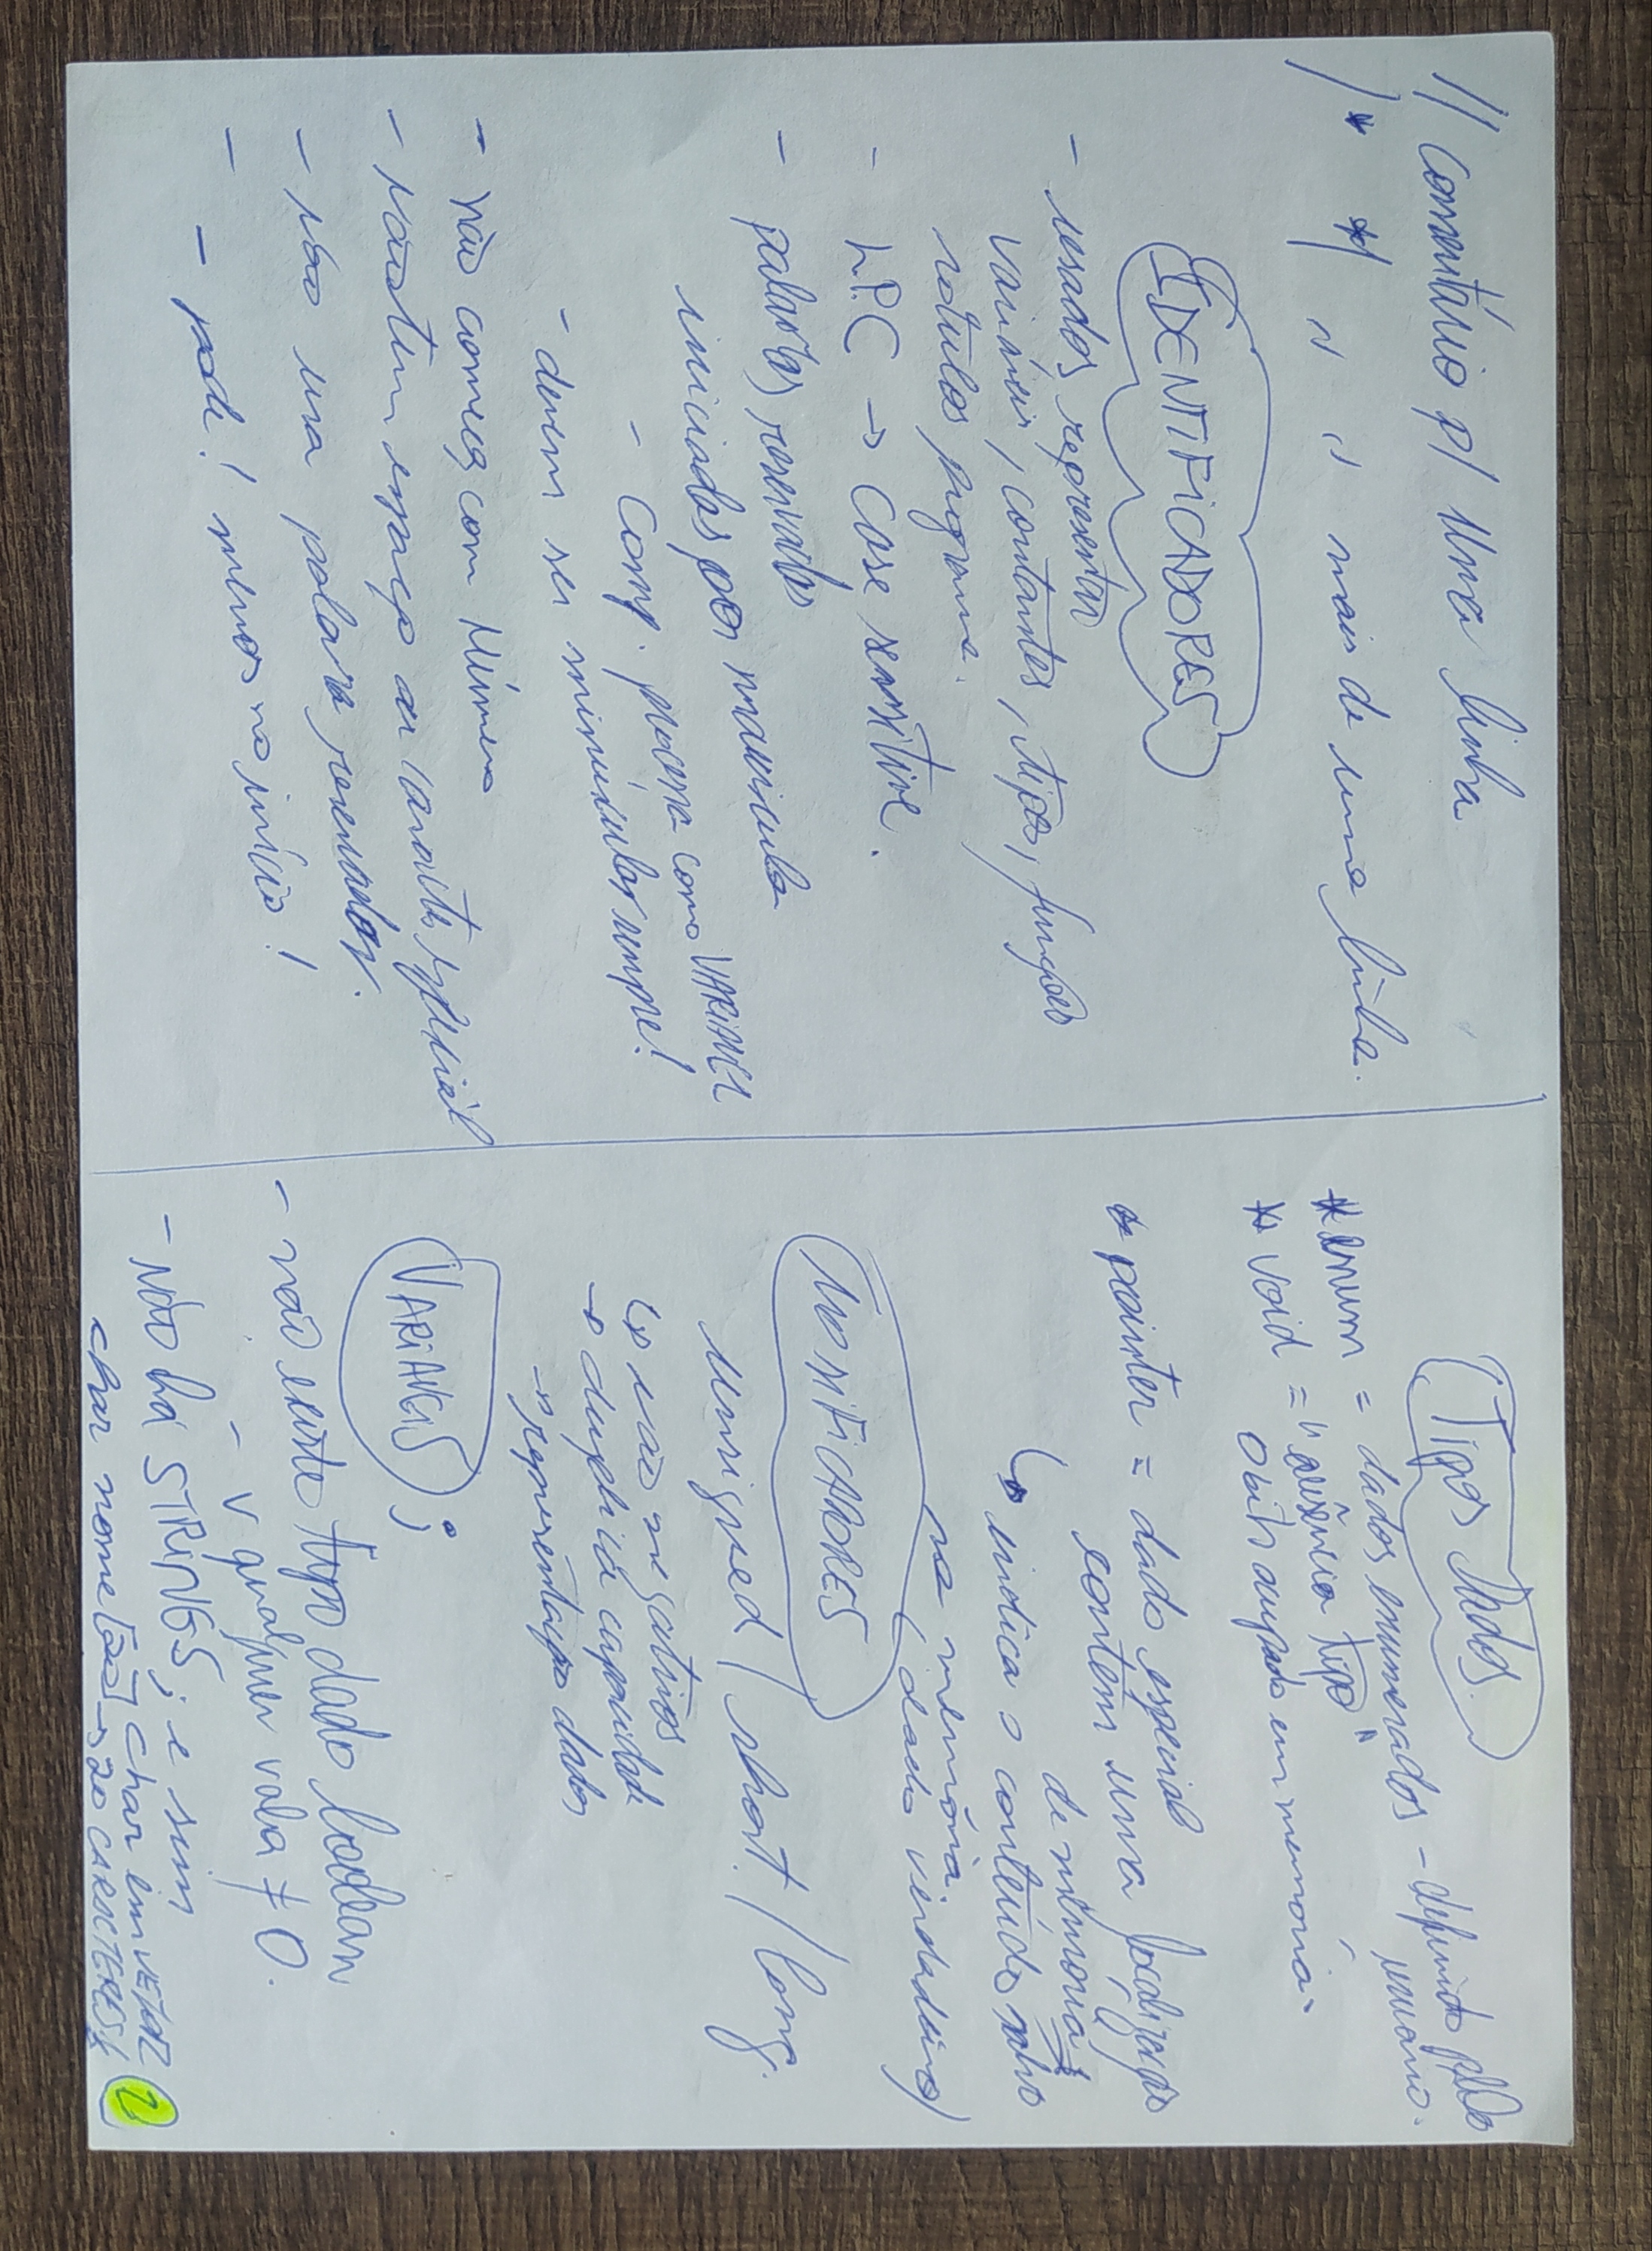 // Comentário p/ uma linha
/* */ " " mais de uma linha.
IDENTIFICADORES
- usados representar
variáveis, contantes, tipos, funções
rótulos programa.
- L.P.C → Case sensitive.
- palavras reservadas
iniciadas por maiúscula
- Comp. processa como VARIAVEL
- devem ser minúsculas sempre!
- não começa com Número
- não tem espaço ou caracter especial
- não usa palavra reservadas.
- - pode! menos no início!
Tipos Dados
* enum = dados enumerados - definido pelo
usuário.
* void = "ausência tipo"
0 bits ocupado em memória.
* pointer = dado especial
contém uma localização
de memória
↳ indica o conteúdo salvo
na memória.
(dado verdadeiro)
MODIFICADORES
unsigned / short. / long.
↳ não negativos
→ duplica capacidade
→ representação dados
VARIAVEIS ;
- não existe tipo dado boolean
- V qualquer valor ≠ 0.
- não há STRINGS; e sim
char em VETOR
char nome [20] → 20 CARACTERES
2